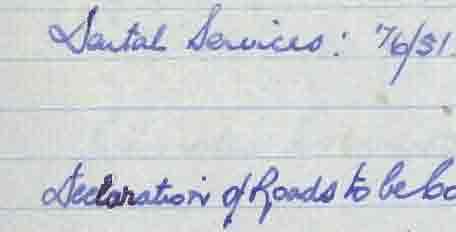 Dental Services: 76/51.
Declaration of Roads to be